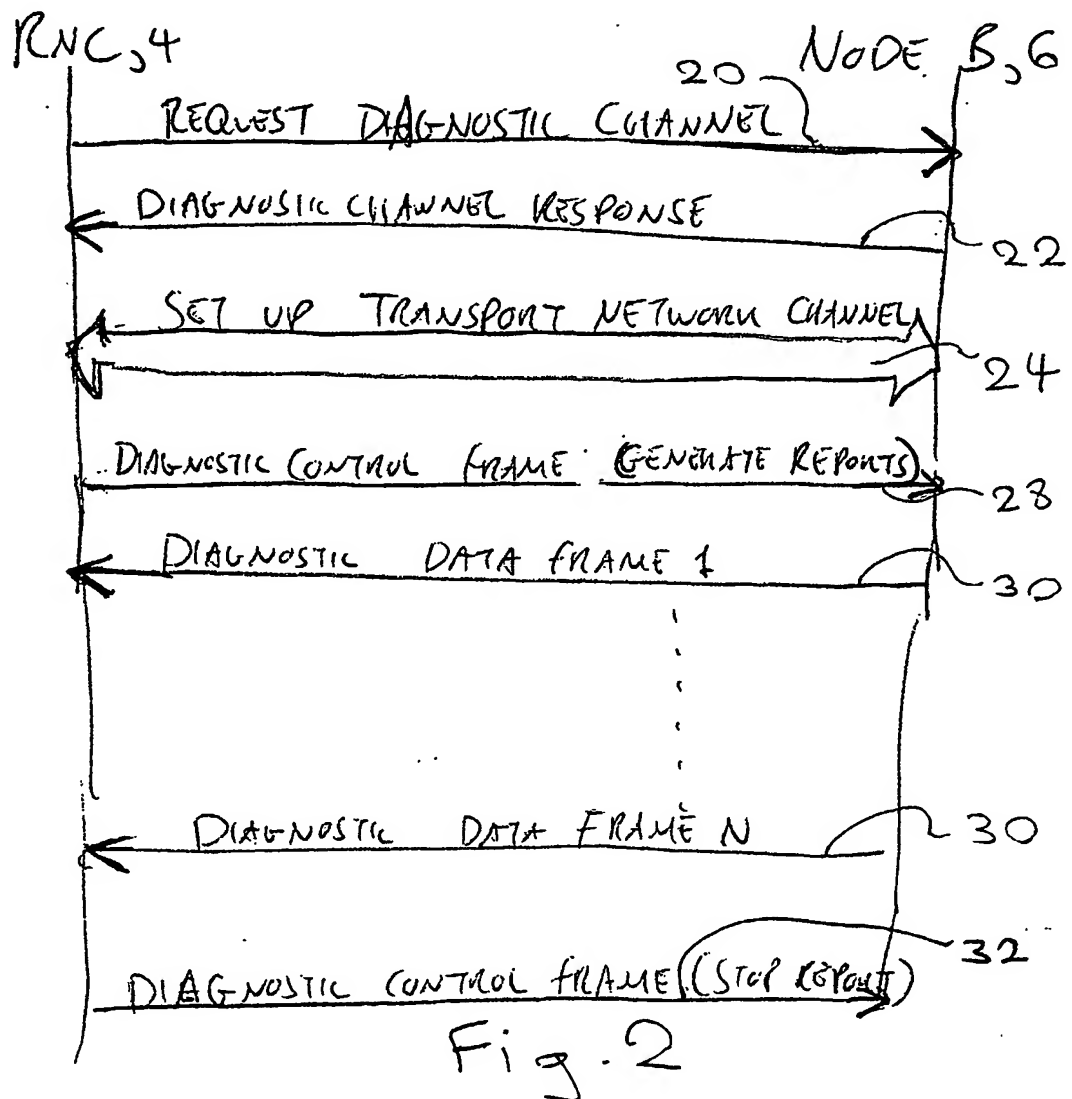 RNC,4
NODE B,6
20
REQUEST DIAGNOSTIC CHANNEL
DIAGNOSTIC CHANNEL RESPONSE
22
SET UP TRANSPORT NETWORK CHANNEL
24
DIAGNOSTIC CONTROL FRAME (GENERATE REPORTS)
28
DIAGNOSTIC DATA FRAME 1
30
DIAGNOSTIC DATA FRAME N
30
32
DIAGNOSTIC CONTROL FRAME (STOP REPORT)
Fig.2